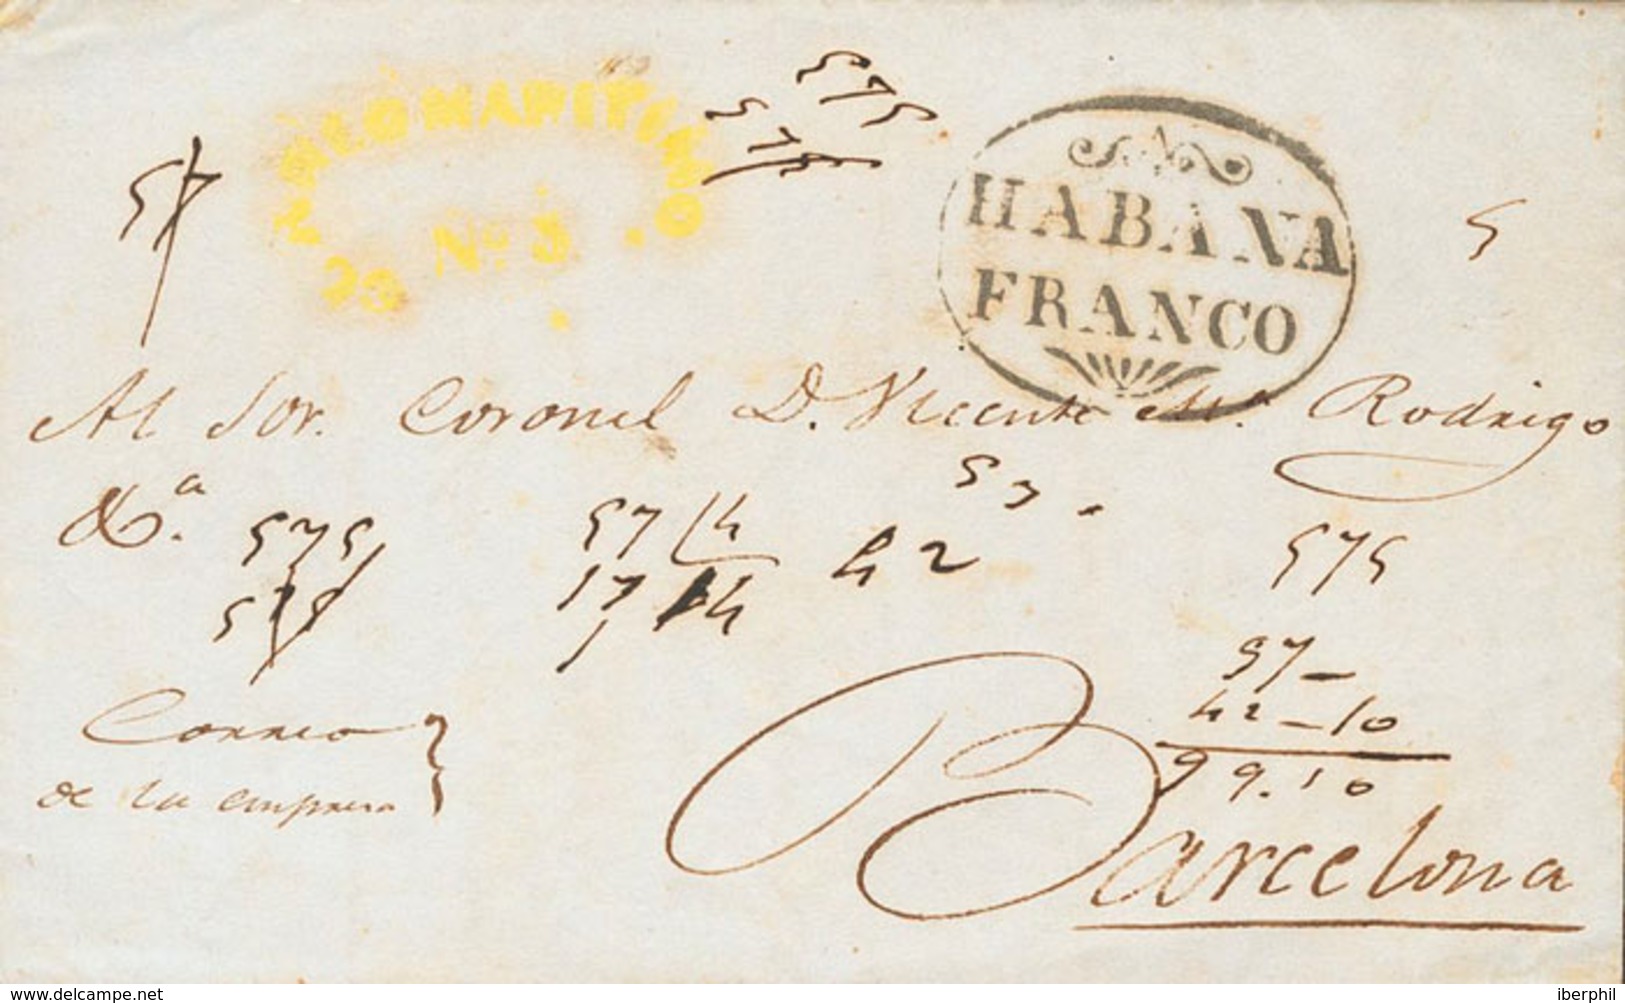 575
575
57
Nº 3
HABANA
FRANCO
5
Al Sor. Coronel D. Vicente Mª. Rodrigo
&ª.
575
57 14
42
575
17 14
57
42-10
99.10
Correo
de la empresa
Barcelona
www.delcampe.net
iberphil